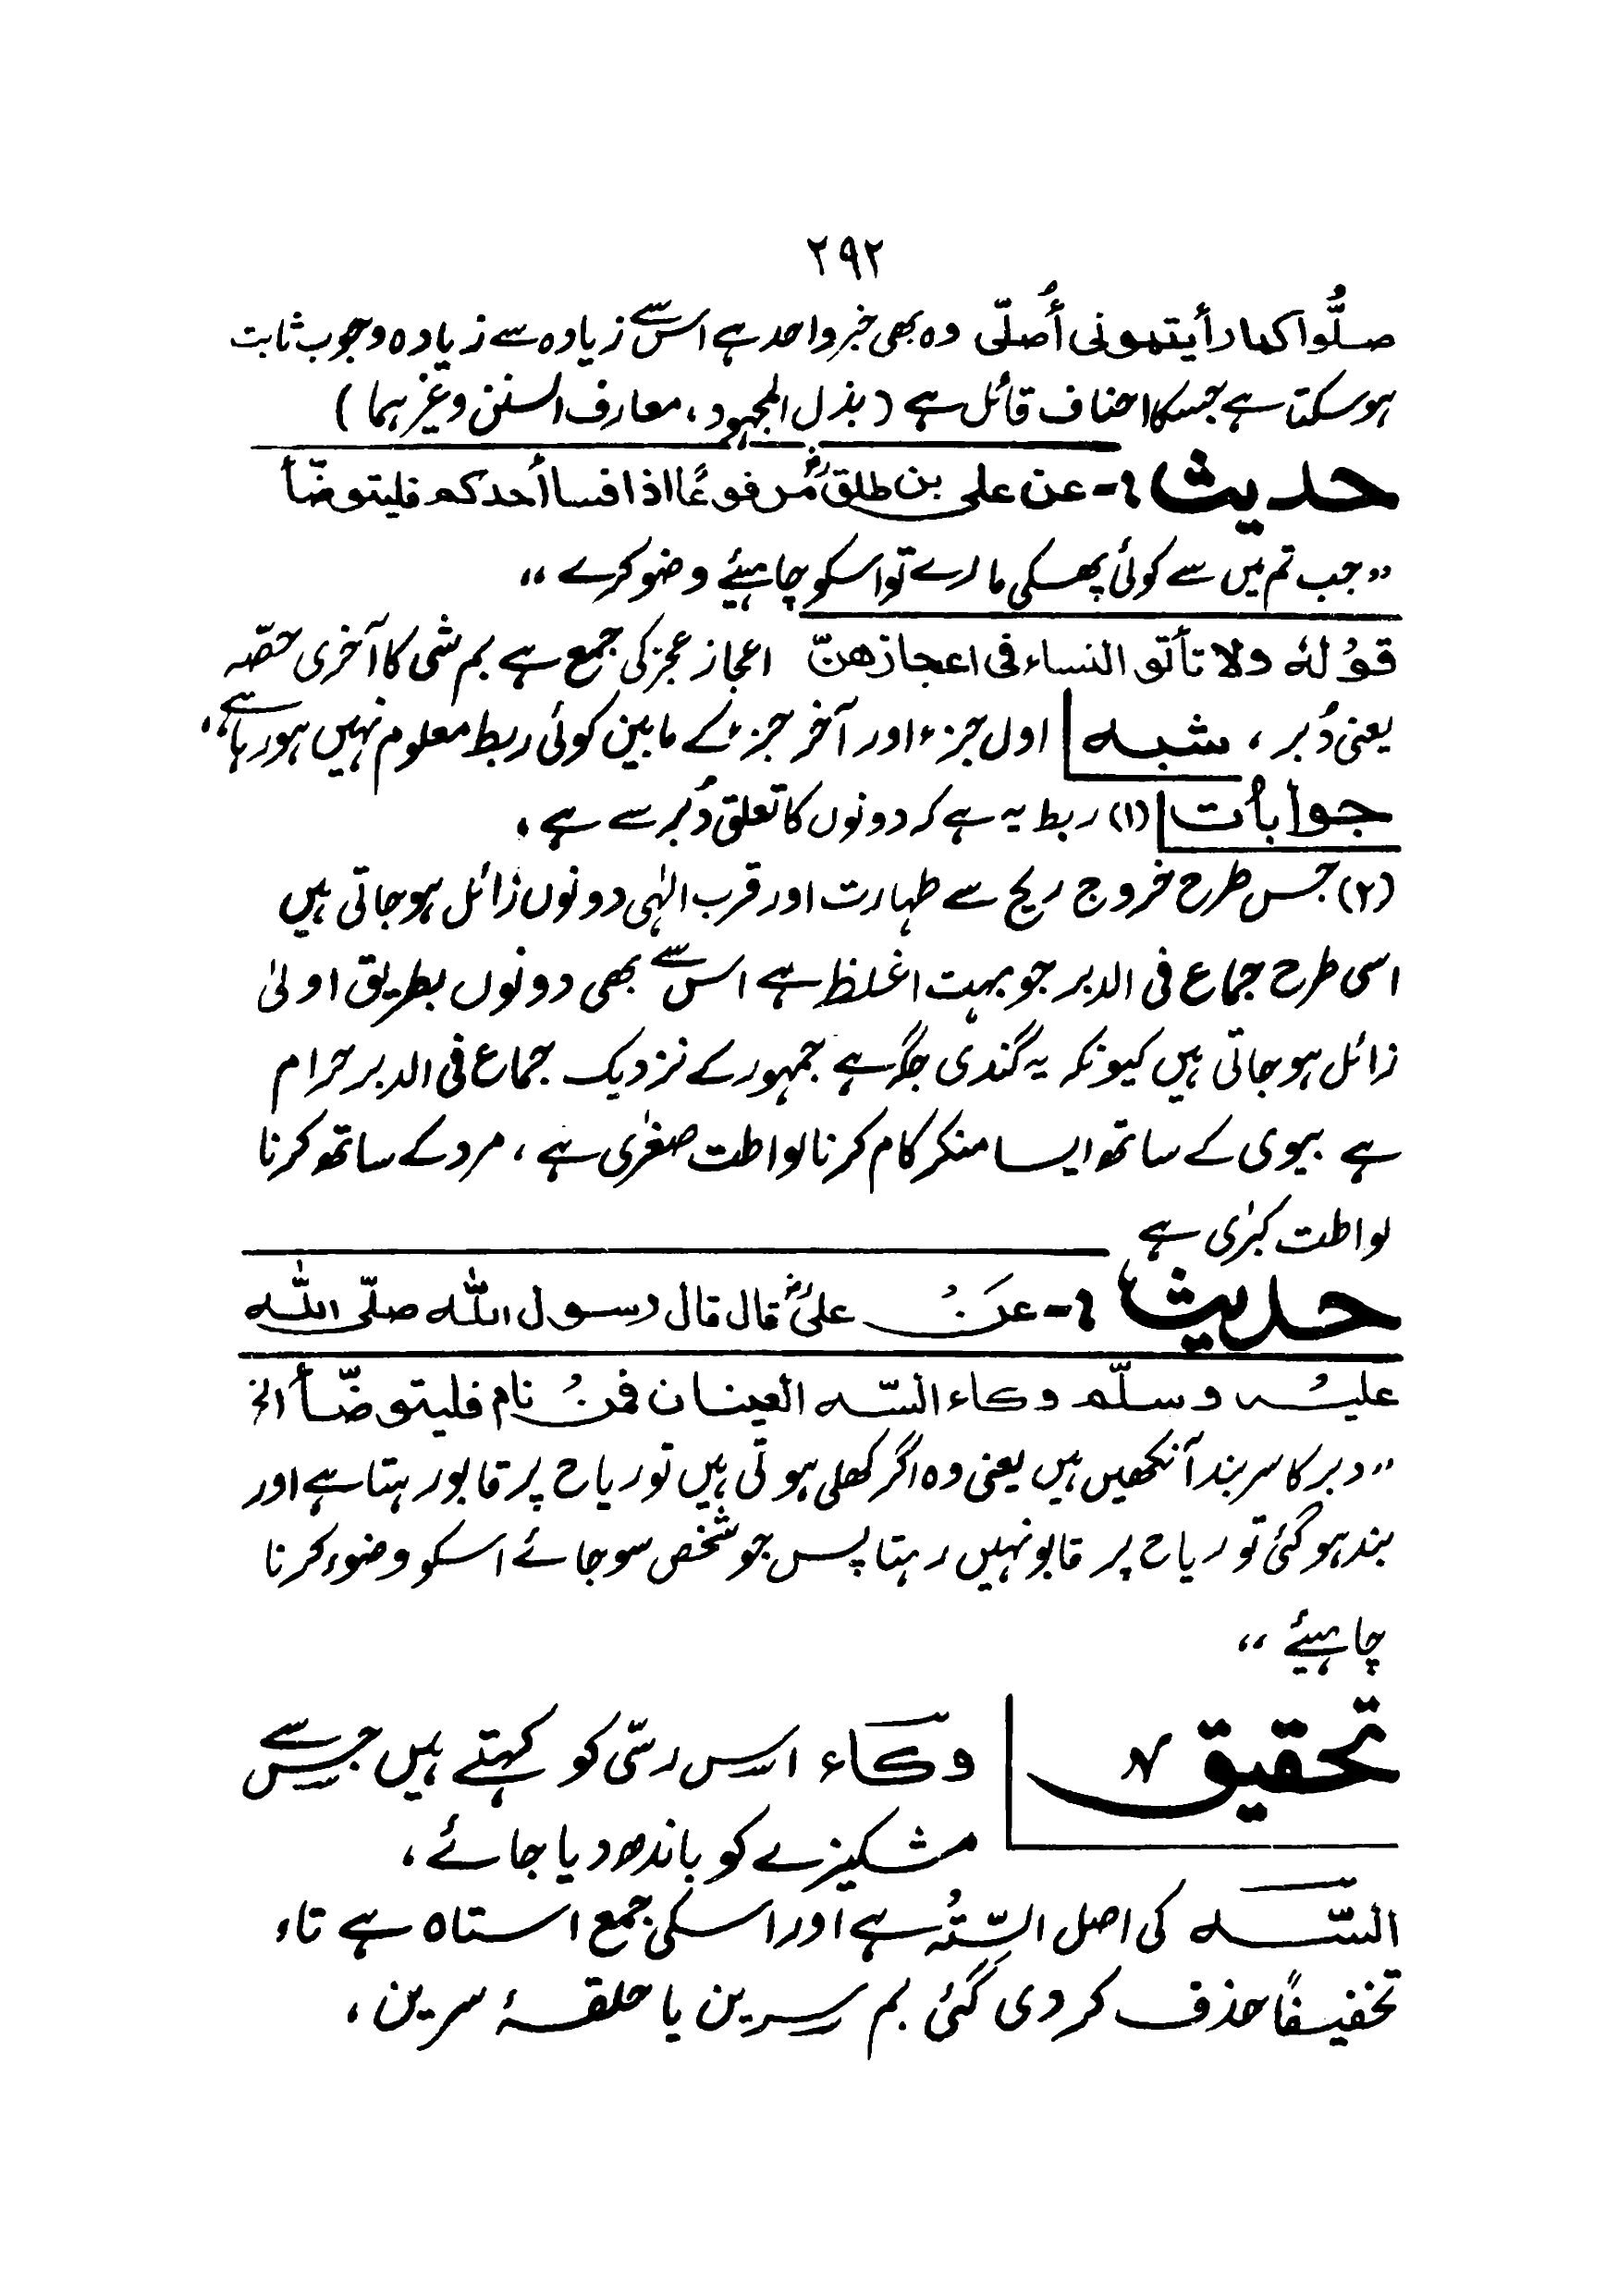 ۲۹۲
صلُّوا كما رأيتمونى أُصلّى وہ بھی خبر واحد ہے اس سے زیادہ سے زیادہ وجوب ثابت
ہوسکتا ہے جسکا احناف قائل ہے (بذل المجہود، معارف السنن وغیرہما)
حدیث :- عن على بن طلقؓ مرفوعًا اذا فسا أحدكم فليتوضّأ
„جب تم میں سے کوئی پھسکی مارے تو اسکو چاہیئے وضو کرے“
قولهٗ ولا تأتو النساء فى اعجازهنّ اعجاز عجز کی جمع ہے بم شی کا آخری حصّہ
یعنی دُبر ، شبہ اول جزء اور آخر جزء کے مابین کوئی ربط معلوم نہیں ہورہا ہے،
جوابات (۱) ربط یہ ہے کہ دونوں کا تعلق دُبر سے ہے ،
(۲) جس طرح خروج ریح سے طہارت اور قرب الٰہی دونوں زائل ہوجاتی ہیں
اسی طرح جماع فی الدبر جو بہت اغلظ ہے اس سے بھی دونوں بطریق اولیٰ
زائل ہوجاتی ہیں کیونکہ یہ گندی جگہ ہے جمہور کے نزدیک جماع فی الدبر حرام
ہے بیوی کے ساتھ ایسا منکر کام کرنا لواطت صغرٰی ہے ، مرد کے ساتھ کرنا
لواطت کبرٰی ہے
حدیث :- عنْ علىؓ قال قال رسول اللّٰه صلّى اللّٰه
عليْه وسلّم وكاء السّه العينان فمنْ نام فليتوضّأ الخ
„دبر کا سربند آنکھیں ہیں یعنی وہ اگر کھلی ہوتی ہیں تو ریاح پر قابو رہتا ہے اور
بند ہوگئی تو ریاح پر قابو نہیں رہتا پس جو شخص سوجائے اسکو وضوء کرنا
چاہیئے“
تحقیق وكاء اس رسّی کو کہتے ہیں جس سے
مشکیزے کو باندھ دیا جائے ،
السّه کی اصل السِّتُہ ہے اور اسکی جمع استاہ ہے تاء
تخفیفًا حذف کردی گئی بم سرین یا حلقۂ سرین ،